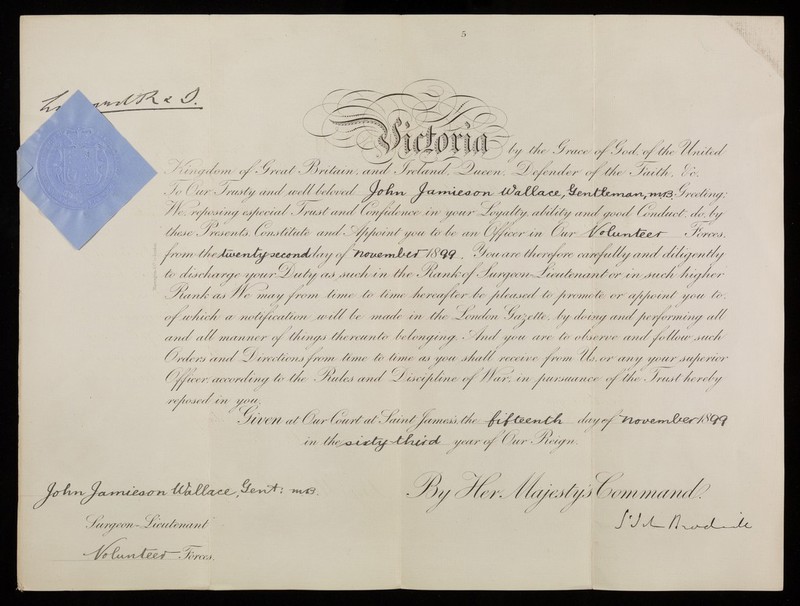 5
R & I.
Victoria by the Grace of God, of the United
Kingdom of Great Britain, and Ireland, Queen, Defender of the Faith, &c.
To Our Trusty and well beloved John Jamieson Wallace, Gentleman, MB Greeting:
We, reposing especial Trust and Confidence in your Loyalty, ability and good Conduct, do, by
these Presents, Constitute and Appoint you to be an Officer in Our Volunteer Forces,
from the twenty second day of November 1899. You are therefore carefully and diligently
to discharge your Duty as such in the Rank of Surgeon-Lieutenant or in such higher
Rank as We may from time to time hereafter be pleased to promote or appoint you to,
of which a notification will be made in the London Gazette, by doing and performing all
and all manner of things thereunto belonging. And you are to observe and follow such
Orders and Directions from time to time as you shall receive from Us, or any your superior
Officer, according to the Rules and Discipline of War, in pursuance of the Trust hereby
reposed in you.
Given at Our Court at Saint James's, the fifteenth day of November 1899
in the sixty third year of Our Reign.
By Her Majesty's Command.
John Jamieson Wallace, Gent: MB.
Surgeon-Lieutenant
Volunteer Forces.